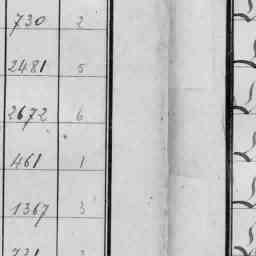 730 2
2481 5
2672 6
461 1
1367 3